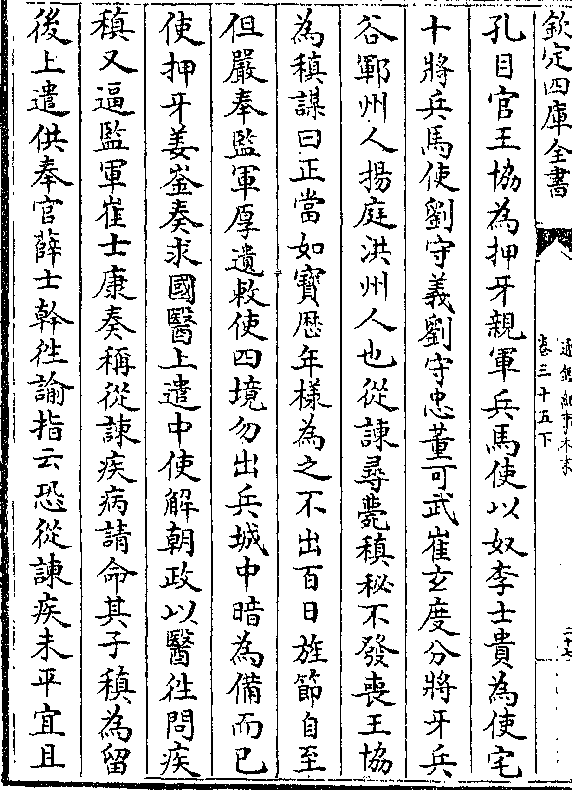 欽定四庫全書
通鑑紀事本末
卷三十五下
孔目官王協為押牙親軍兵馬使以奴李士貴為使宅
十將兵馬使劉守義劉守忠董可武崔玄度分將牙兵
谷鄆州人揚庭洪州人也從諫尋薨稹秘不發喪王協
為稹謀曰正當如寳歴年樣為之不出百日旌節自至
但嚴奉監軍厚遺敕使四境勿出兵城中暗為備而已
使押牙姜崟奏求國醫上遣中使解朝政以醫徃問疾
稹又逼監軍崔士康奏稱從諫疾病請命其子稹為留
後上遣供奉官薛士幹徃諭指云恐從諫疾未平宜且